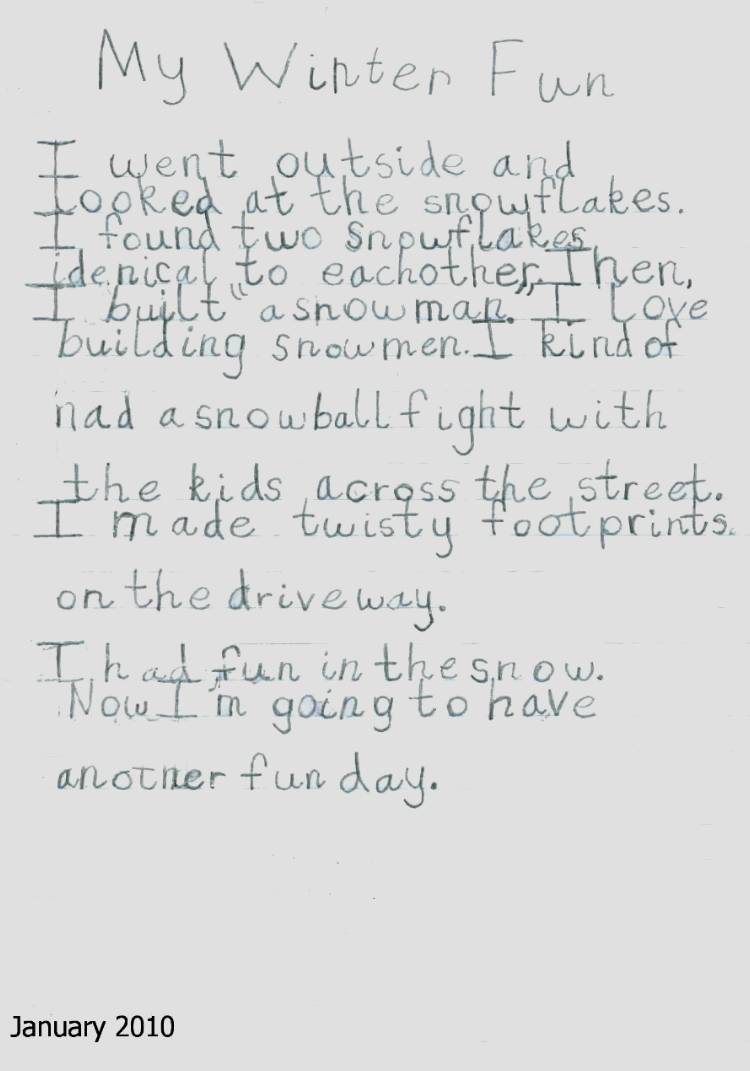 My Winter Fun
I went outside and
looked at the snowflakes.
I found two snowflakes
idenical to eachother. Then,
I built "a snowman." I love
building snowmen. I kind of
had a snowball fight with
the kids across the street.
I made twisty footprints
on the driveway.
I had fun in the snow.
Now I'm going to have
another fun day.
January 2010